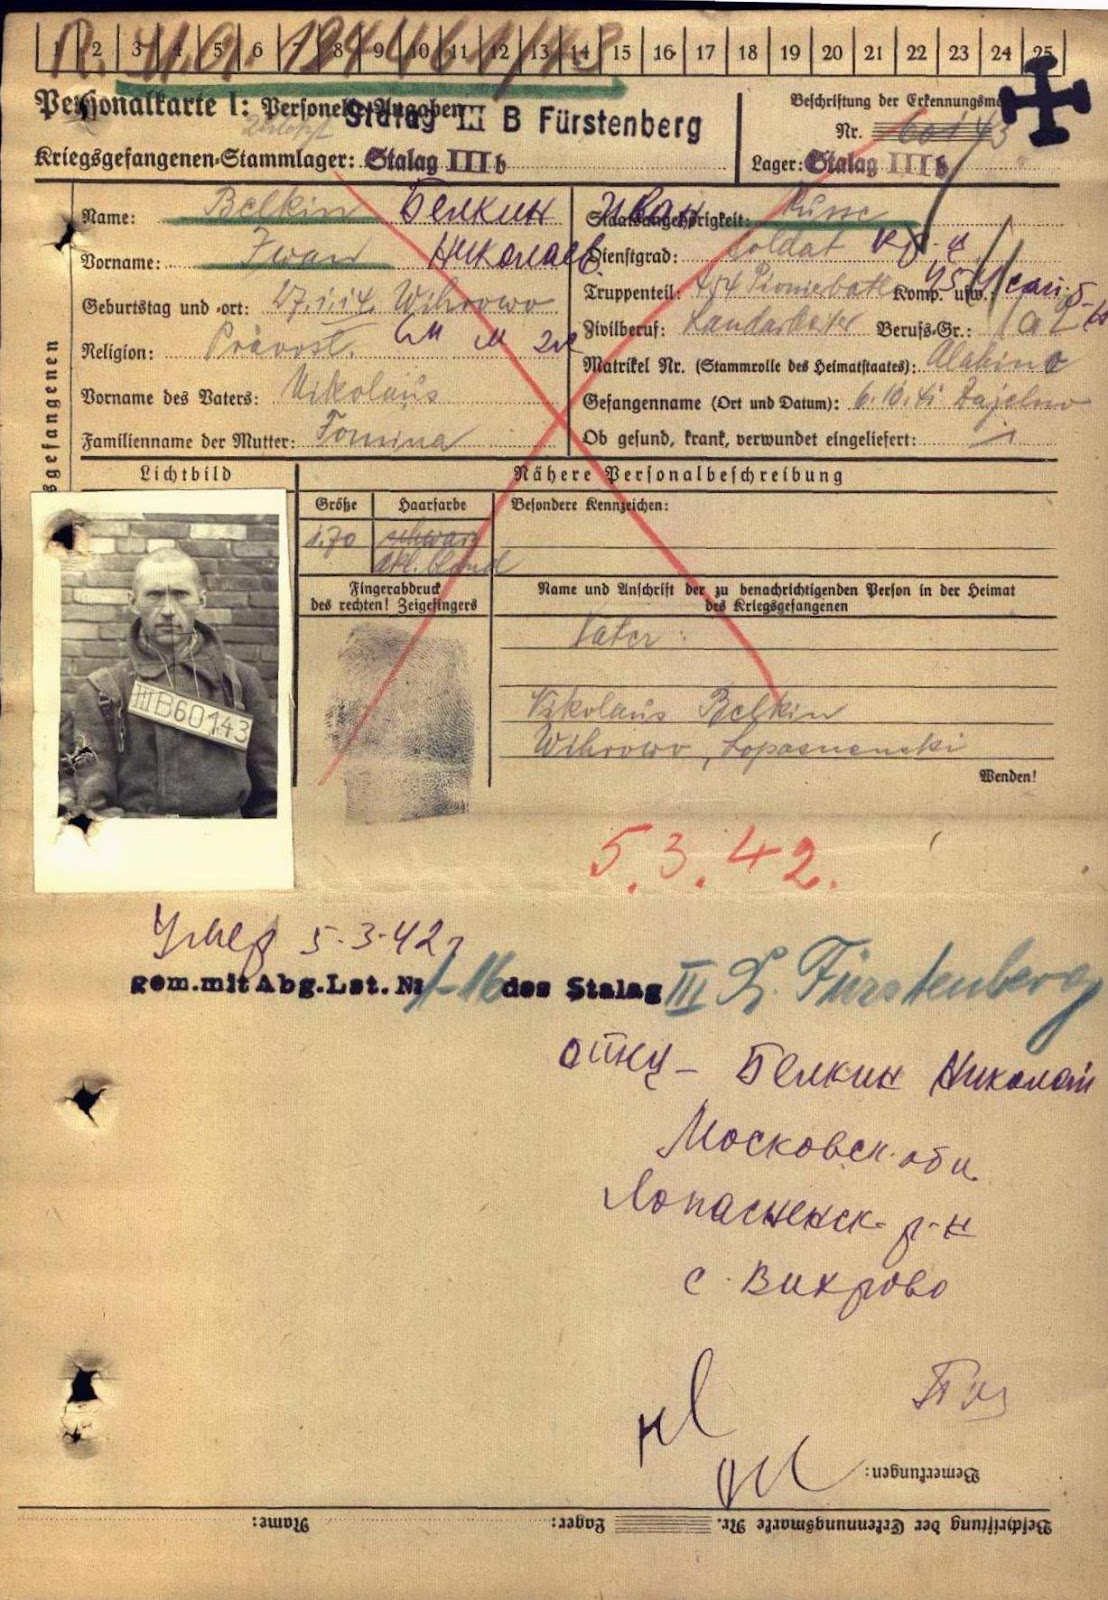 1 2 3 4 5 6 7 8 9 10 11 12 13 14 15 16 17 18 19 20 21 22 23 24 25
Personalkarte I: Personelle Angaben
Stalag III B Fürstenberg
Beschriftung der Erkennungsma
Nr. 60143
Kriegsgefangenen-Stammlager: Stalag III b
Lager: Stalag III b
Name: Belkin Белкин Иван
Staatsangehörigkeit: Russe
Vorname: Iwan Николаев.
Dienstgrad: Soldat кр-ц
Geburtstag und -ort: 27.1.14. Wihrowo
Truppenteil: 454 Pionierbatl Komp. usw.:
Zivilberuf: Landarbeiter Berufs-Gr.:
Religion: Pravosl.
Matrikel Nr. (Stammrolle des Heimatstaates): Alabino
Vorname des Vaters: Nikolaus
Gefangenname (Ort und Datum): 6.10.41
Familienname der Mutter: Fomina
Ob gesund, krank, verwundet eingeliefert:
sgefangenen
Lichtbild
Nähere Personalbeschreibung
Größe Haarfarbe Besondere Kennzeichen:
1.70 schwarz
dkl. blond
Fingerabdruck
des rechten! Zeigefingers
Name und Anschrift der zu benachrichtigenden Person in der Heimat
des Kriegsgefangenen
Vater:
III B 60143
Nikolaus Belkin
Wihrowo, Lopasnenski
Wenden!
5.3.42.
Умер 5-3-42 г
gem. mit Abg. Lst. Nr 1-16 des Stalag III B. Fürstenberg
отец - Белкин Николай
Московск. обл.
Лопасненск. р-н
с. Вихрово
Bemerkungen:
Beschriftung der Erkennungsmarke Nr. Lager: Name: